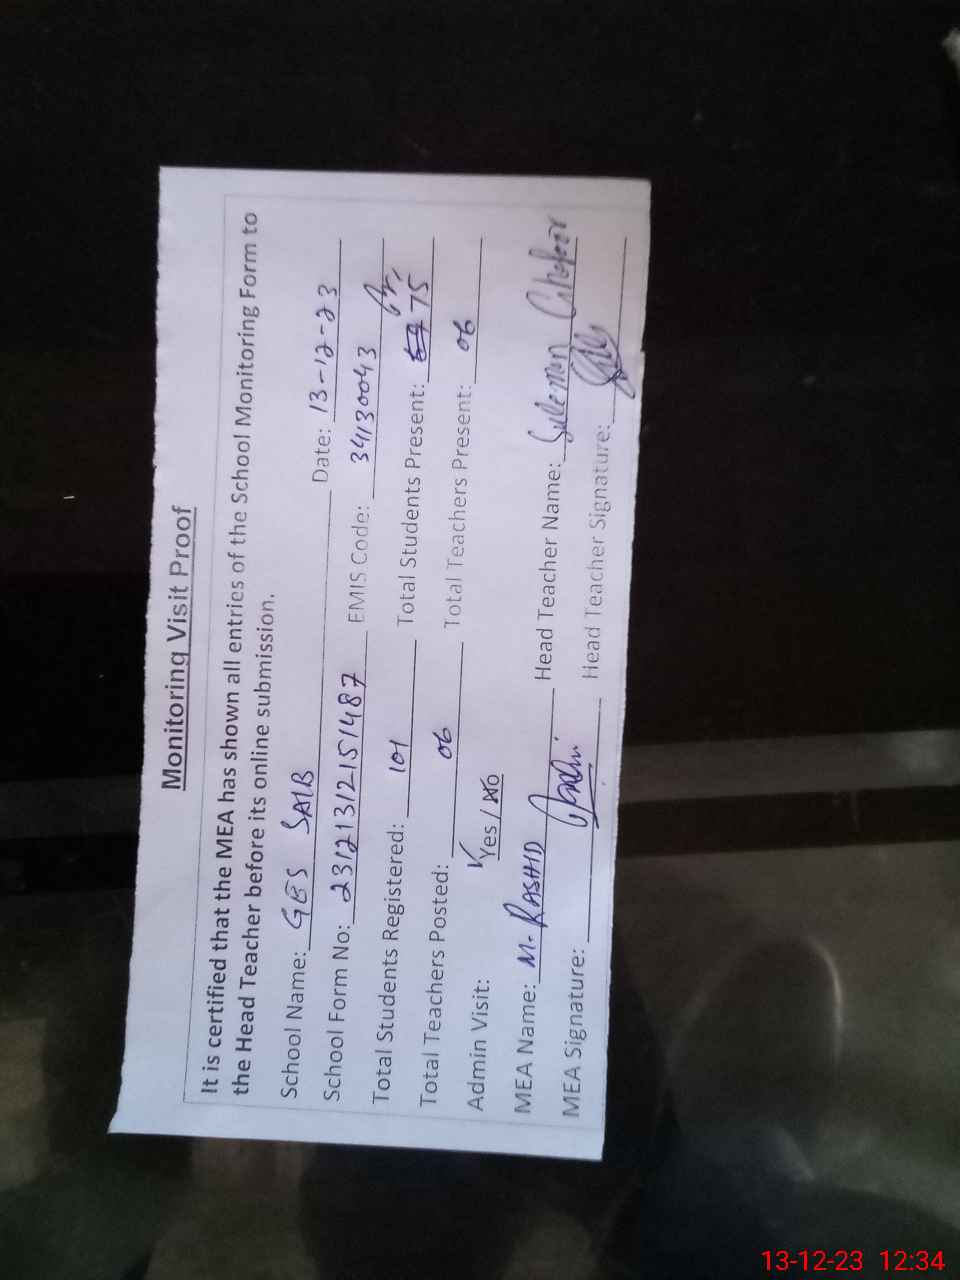 Monitoring Visit Proof
It is certified that the MEA has shown all entries of the School Monitoring Form to
the Head Teacher before its online submission.
School Name: GES SAIB Date: 13-12-23
School Form No: 23121312151487 EMIS Code: 34130043
Total Students Registered: 101 Total Students Present: 75
Total Teachers Posted: 06 Total Teachers Present: 06
Admin Visit: Yes / No
MEA Name: M. RASHID Head Teacher Name: Suleman Ghafoor
MEA Signature: Head Teacher Signature:
13-12-23 12:34